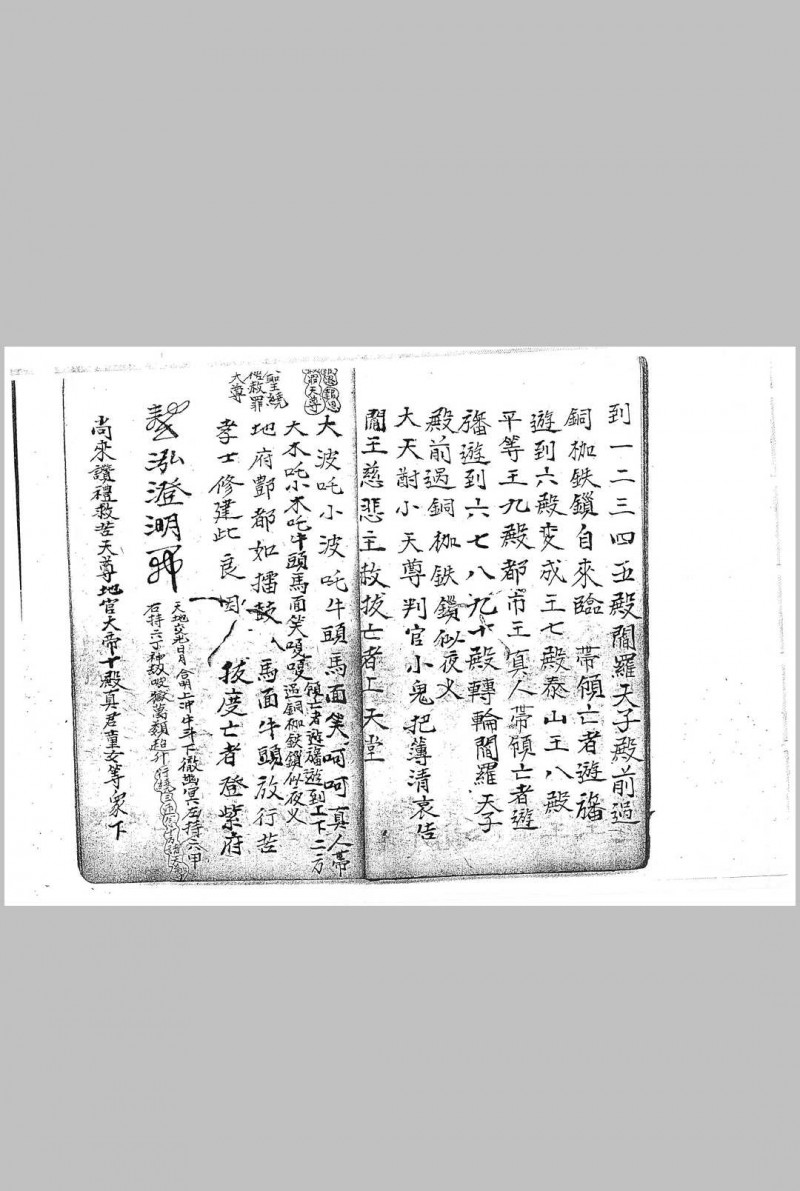 到一二三四五殿閻羅天子殿前過
銅枷鉄鎖自來臨 帶領亡者遊旛
遊到六殿変成王七殿泰山王八殿
平等王九殿都市王真人帶領亡者遊
旛遊到六七八九十殿轉輪閻羅天子
殿前過銅枷鉄鎖似夜义
大天尉小天尊判官小鬼把薄清哀告
閻王慈悲主救拔亡者上天堂
大波吒小波吒牛頭馬面笑呵呵真人帶
領亡者遊旛遊到上下二方
大木吒小木吒牛頭馬面笑嗄嗄過銅枷鉄鎖似夜义
地府酆都如擂鼓 馬面牛頭放行苦
孝士修建此良因 拔度亡者登紫府
聖境
救罪
大尊
泓澄湖
天地 日月合明上沖牛斗下徹幽冥左持六甲
右持六丁神 萬類
尚來讚禮救苦天尊地官大帝十殿真君童女等眾下